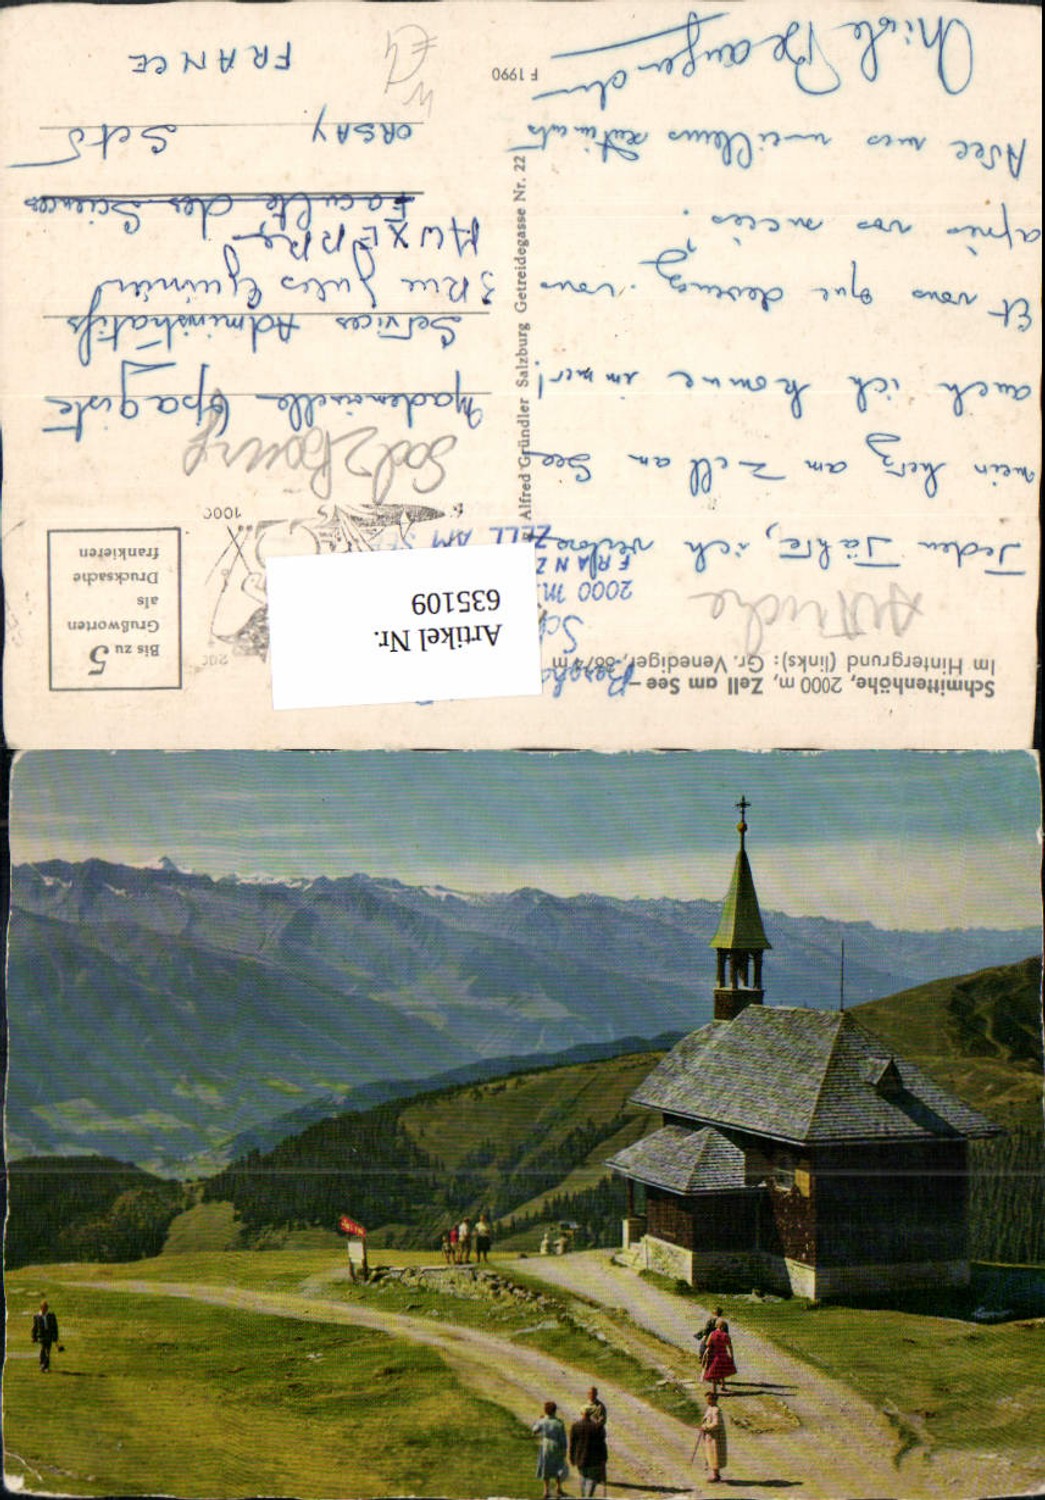 Schmittenhöhe, 2000 m, Zell am See
Im Hintergrund (links): Gr. Venediger, 3674 m
Autriche
2000 m
FRANZ
ZELL AM SEE
Jeden Jahre, ich verlore
mein herz am Zell am See
auch ich komme immer!
Et vous que devenez-vous
après vos succès?
Avec mes meilleurs sentiments
Nicole
Alfred Gründler Salzburg Getreidegasse Nr. 22
F 1990
Artikel Nr.
635109
Bis zu 5
Grußworten
als
Drucksache
frankieren
Salzbourg
Mademoiselle
Services Administratifs
3 Rue Jules
AUXERRE
Faculté des Sciences
ORSAY S et O
FRANCE